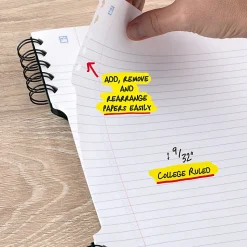 ADD, REMOVE
AND
REARRANGE
PAPERS EASILY
1 9/32"
COLLEGE RULED